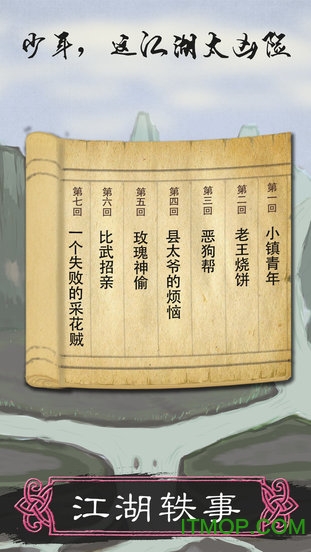 少年，这江湖太凶险
第一回 小镇青年
第二回 老王烧饼
第三回 恶狗帮
第四回 县太爷的烦恼
第五回 玫瑰神偷
第六回 比武招亲
第七回 一个失败的采花贼
江湖轶事
ITMOP.COM